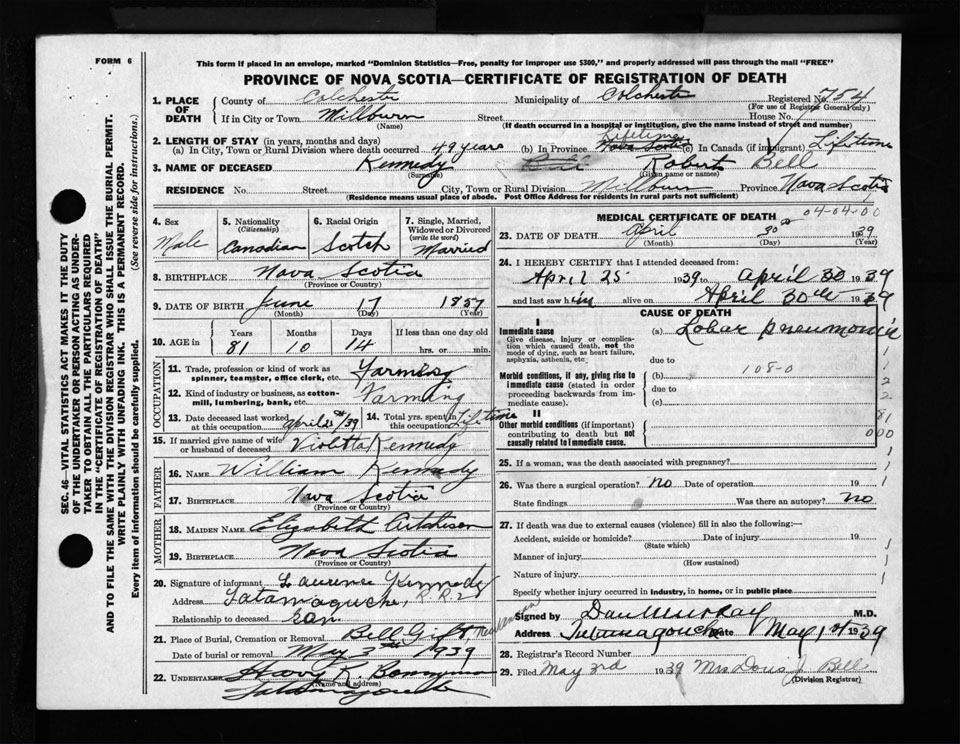 FORM 6
This form if placed in an envelope, marked "Dominion Statistics—Free, penalty for improper use $300," and properly addressed will pass through the mail "FREE"
PROVINCE OF NOVA SCOTIA—CERTIFICATE OF REGISTRATION OF DEATH
SEC. 46—VITAL STATISTICS ACT MAKES IT THE DUTY
OF THE UNDERTAKER OR PERSON ACTING AS UNDER-
TAKER TO OBTAIN ALL THE PARTICULARS REQUIRED
IN THE "CERTIFICATE OF REGISTRATION OF DEATH"
AND TO FILE THE SAME WITH THE DIVISION REGISTRAR WHO SHALL ISSUE THE BURIAL PERMIT.
WRITE PLAINLY WITH UNFADING INK. THIS IS A PERMANENT RECORD.
Every item of information should be carefully supplied. (See reverse side for instructions.)
1. PLACE OF DEATH County of Colchester Municipality of Colchester Registered No. 754
(For use of Registrar General only)
If in City or Town Millburn Street House No.
(Name) (If death occurred in a hospital or institution, give the name instead of street and number)
2. LENGTH OF STAY (in years, months and days)
(a) In City, Town or Rural Division where death occurred 49 years (b) In Province Lifetime Nova Scotia (c) In Canada (if immigrant) Lifetime
3. NAME OF DECEASED Kennedy Robert Bell
(Surname) (Given name or names)
RESIDENCE No. Street City, Town or Rural Division Millburn Province Nova Scotia
(Residence means usual place of abode. Post Office Address for residents in rural parts not sufficient)
4. Sex Male
5. Nationality (Citizenship) Canadian
6. Racial Origin Scotch
7. Single, Married, Widowed or Divorced (write the word) Married
8. BIRTHPLACE Nova Scotia
(Province or Country)
9. DATE OF BIRTH June 17 1857
(Month) (Day) (Year)
10. AGE in Years 81 Months 10 Days 14 If less than one day old hrs. or min.
OCCUPATION
11. Trade, profession or kind of work as spinner, teamster, office clerk, etc. Farming
12. Kind of industry or business, as cotton-mill, lumbering, bank, etc. Farming
13. Date deceased last worked at this occupation April 25th/39
14. Total yrs. spent in this occupation Lifetime
15. If married give name of wife or husband of deceased Violetta Kennedy
FATHER
16. NAME William Kennedy
17. BIRTHPLACE Nova Scotia
(Province or Country)
MOTHER
18. MAIDEN NAME Elizabeth
19. BIRTHPLACE Nova Scotia
(Province or Country)
20. Signature of informant Laurence Kennedy
Address Tatamagouche, R.R. 2
Relationship to deceased son
21. Place of Burial, Cremation or Removal Bell Gift,
Date of burial or removal May 3rd 1939
22. UNDERTAKER
(Name and address)
Tatamagouche
MEDICAL CERTIFICATE OF DEATH 04-04-00
23. DATE OF DEATH April 30 1939
(Month) (Day) (Year)
24. I HEREBY CERTIFY that I attended deceased from:
April 25 1939 to April 30 1939
and last saw him alive on April 30th 1939
CAUSE OF DEATH
I
Immediate cause (a) Lobar pneumonia
Give disease, injury or complica-
tion which caused death, not the
mode of dying, such as heart failure,
asphyxia, asthenia, etc.
due to
Morbid conditions, if any, giving rise to
immediate cause (stated in order
proceeding backwards from im-
mediate cause).
(b) 108-0
due to
(c)
II
Other morbid conditions (if important)
contributing to death but not
causally related to immediate cause.
1
1
2
2
81
000
25. If a woman, was the death associated with pregnancy?
26. Was there a surgical operation? no Date of operation 19
State findings Was there an autopsy? no
27. If death was due to external causes (violence) fill in also the following:—
Accident, suicide or homicide? Date of injury 19
(State which)
Manner of injury
(How sustained)
Nature of injury
Specify whether injury occurred in industry, in home, or in public place
Signed by Dan Murray M.D.
Address Tatamagouche Date May 1st 1939
28. Registrar's Record Number
29. Filed May 3rd 1939 Mrs Doris J. Bell
(Division Registrar)